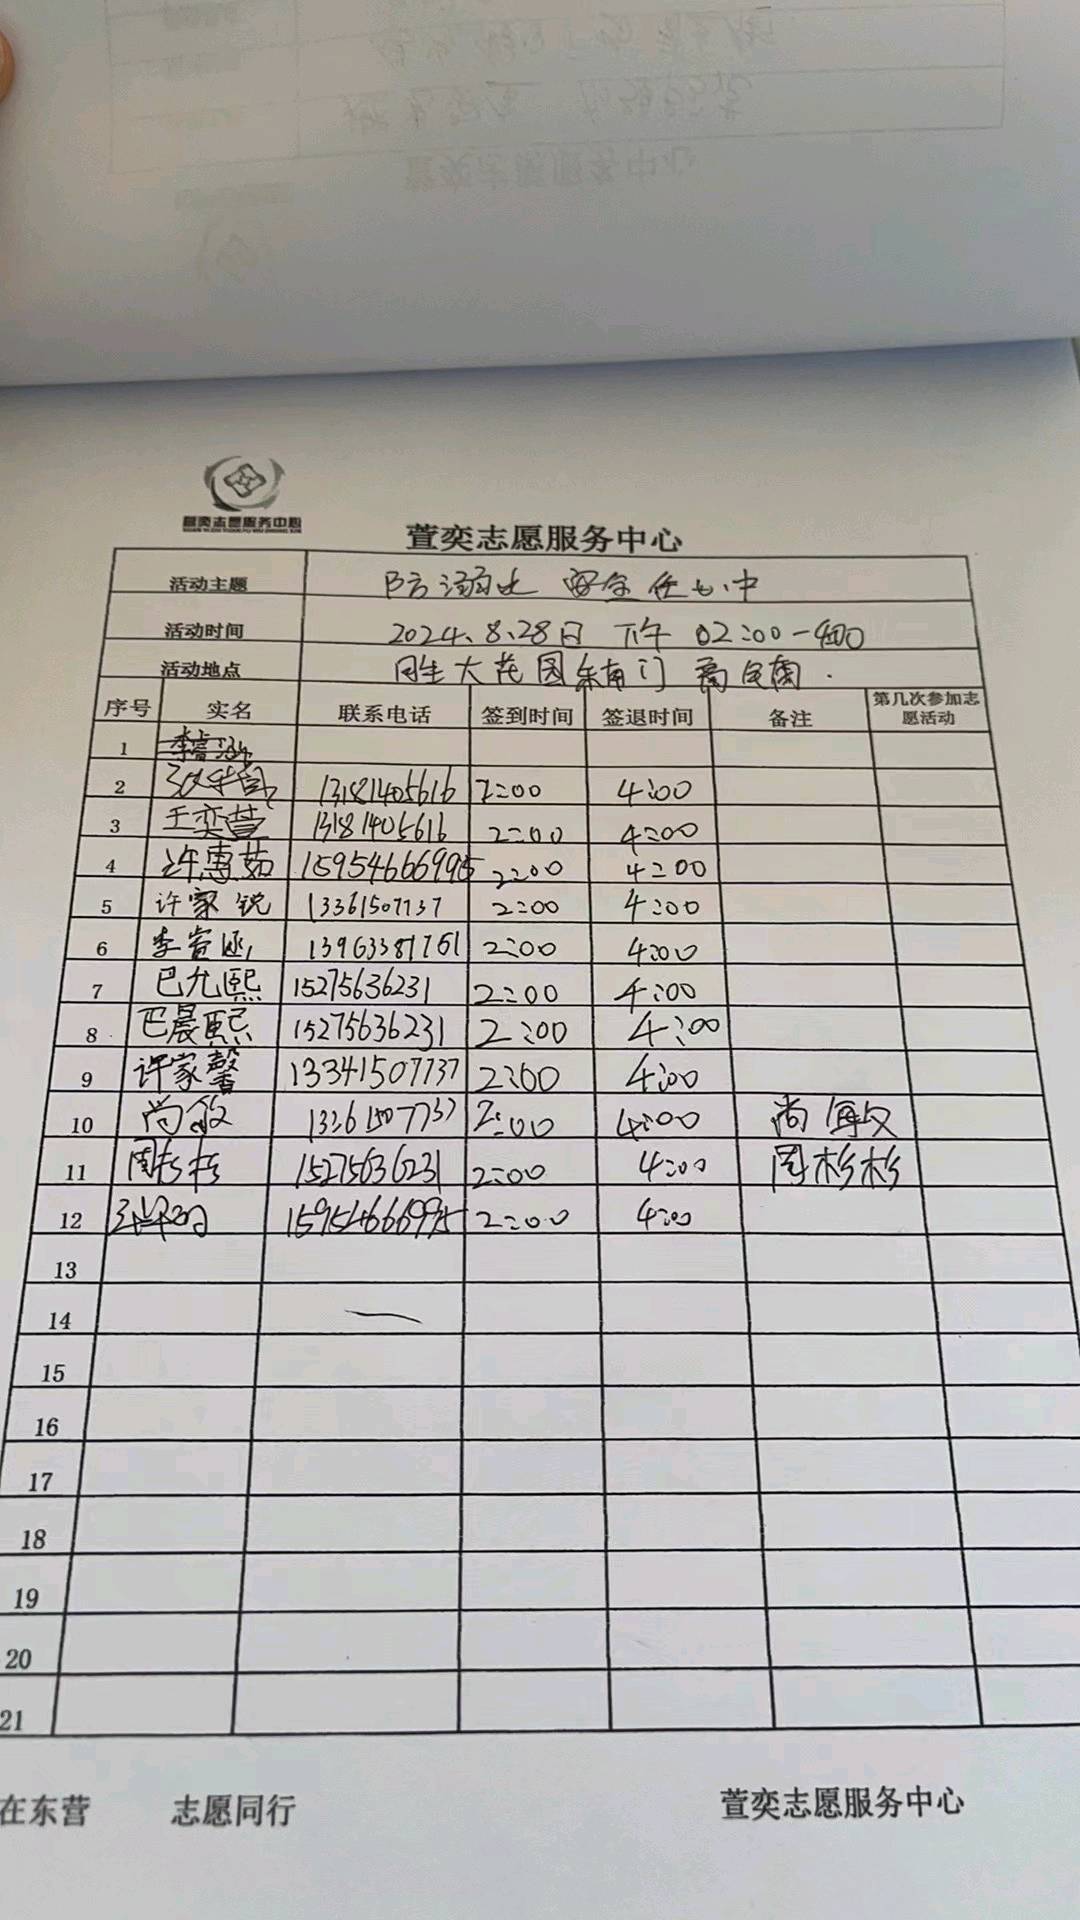 萱奕志愿服务中心
萱奕志愿服务中心
活动主题 防溺水 安全在心中
活动时间 2024.8.28日 下午 02:00-4:00
活动地点 同生大花园东南门
序号 实名 联系电话 签到时间 签退时间 备注 第几次参加志愿活动
1 李睿涵
2 13181405616 2:00 4:00
3 王奕萱 13181405616 2:00 4:00
4 许惠茹 15954666995 2:00 4:00
5 许家锐 13361507737 2:00 4:00
6 李宣涵 13963381761 2:00 4:00
7 巴允熙 15275636231 2:00 4:00
8 巴晨熙 15275636231 2:00 4:00
9 许家馨 13341507737 2:00 4:00
10 尚敏 13361507737 2:00 4:00 尚敏
11 周杉杉 15275636231 2:00 4:00 周杉杉
12 15954666995 2:00 4:00
13
14
15
16
17
18
19
20
21
在东营 志愿同行 萱奕志愿服务中心